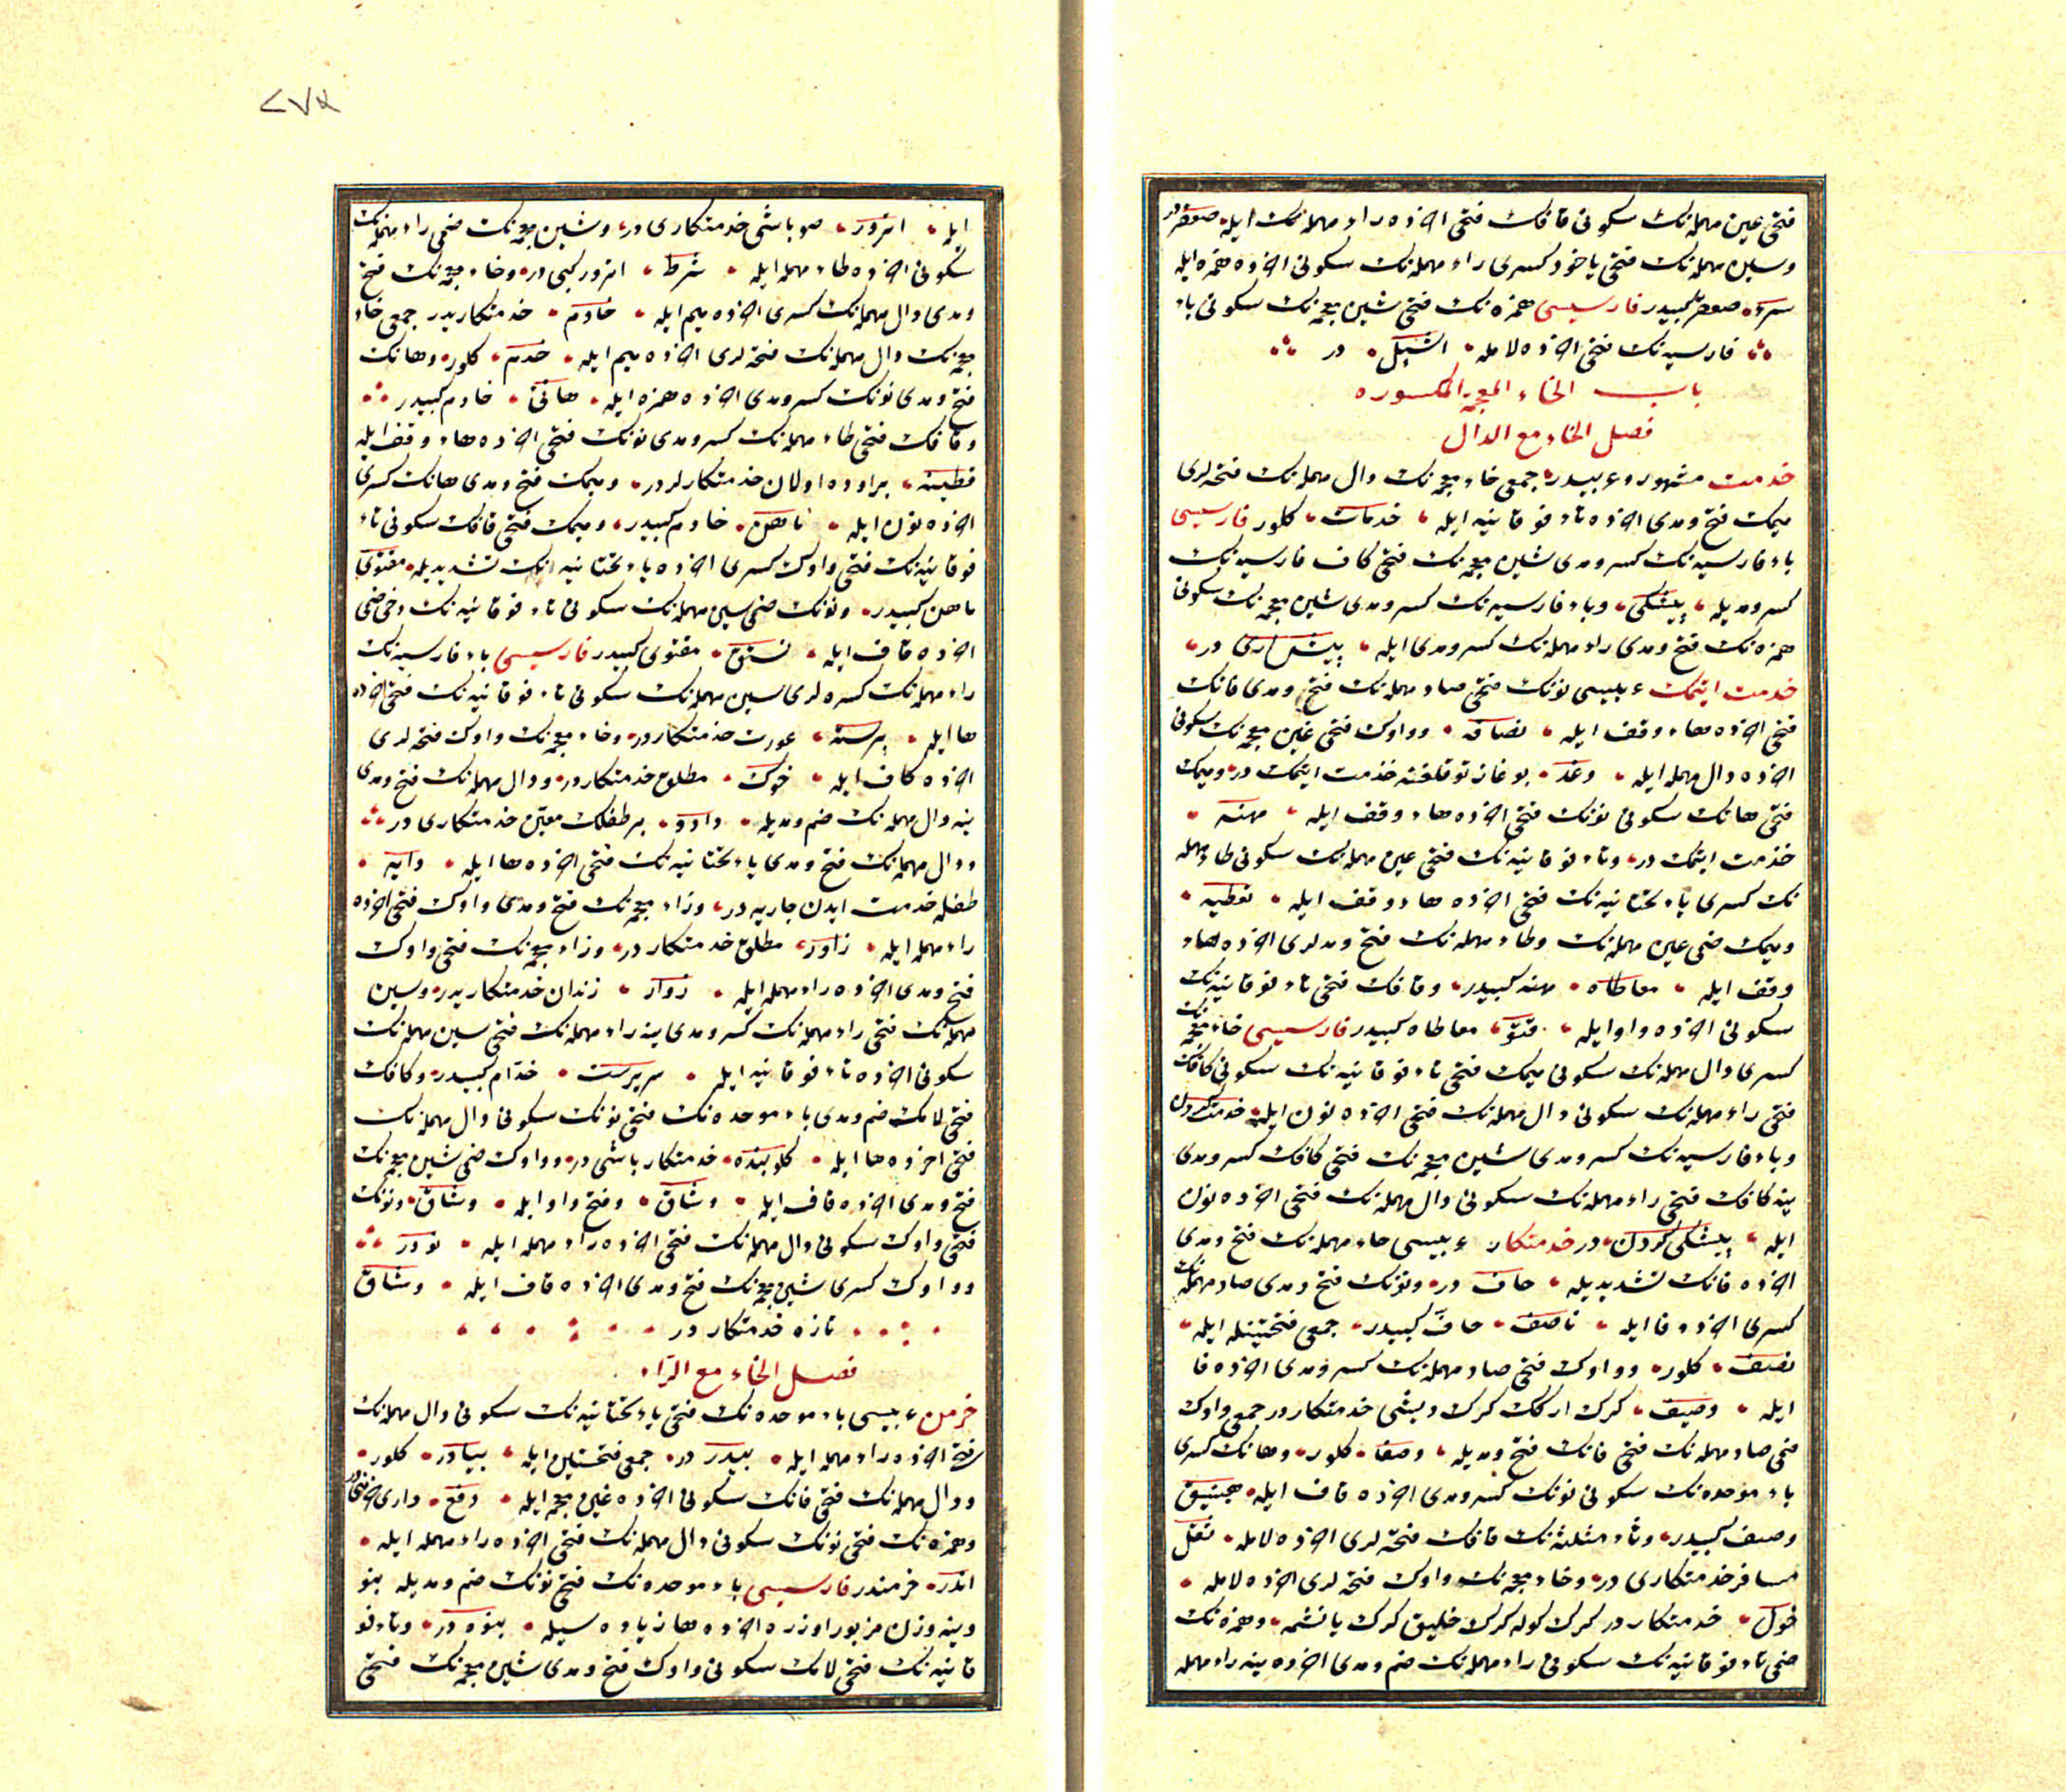 فتحی عین مهمله‌نك سکونی قافك فتحی اخذه راء مهمله‌نك ایله صعقر
وسین مهمله‌نك فتحی یاخود کسری راء مهمله‌نك سکونی اخذه همزه ایله
سرء صعقر کبیدر فارسیسی همزه‌نك فتحی شین معجمه‌نك سکونی باء
فارسیه‌نك فتحی اخذه لامله اشپل در
باب الخاء المعجمة المکسوره
فصل الخاء مع الدال
خدمت مشهور و عربیدر جمعی خاء معجمه‌نك دال مهمله‌نك فتحه‌لری
میمك فتح ومدی اخذه تاء فوقانیه ایله خدمات کلور فارسیسی
باء فارسیه‌نك کسر ومدی شین معجمه‌نك فتحی کاف فارسیه‌نك
کسر ومدیله پیشکی وباء فارسیه‌نك کسر ومدی شین معجمه‌نك سکونی
همزه‌نك فتح ومدی راء مهمله‌نك کسر ومدی ایله پیش اری در
خدمت ایتمك عربیسی نونك فتحی صاد مهمله‌نك فتح ومدی فانك
فتحی اخذه هاء وقف ایله نصافه وواوك فتحی غین معجمه‌نك سکونی
اخذه دال مهمله ایله وغد بوغاز توقلغنه خدمت ایتمك در ومیمك
فتحی هانك سکونی نونك فتحی اخذه هاء وقف ایله مهنه
خدمت ایتمك در وتاء فوقانیه‌نك فتحی عین مهمله‌نك سکونی طاء مهمله
نك کسری یاء تحتانیه‌نك فتحی اخذه هاء وقف ایله تعطیه
ومیمك ضمی عین مهمله‌نك وطاء مهمله‌نك فتح ومدلری اخذه هاء
وقف ایله معاطاه مهنه کبیدر وقافك فتحی تاء فوقانیه‌نك
سکونی اخذه واو ایله قتو معاطاه کبیدر فارسیسی خاء معجمه‌نك
کسری دال مهمله‌نك سکونی میمك فتحی تاء فوقانیه‌نك سکونی کافك
فتحی راء مهمله‌نك سکونی دال مهمله‌نك فتحی اخذه نون ایله خدمت کردن
وباء فارسیه‌نك کسر ومدی شین معجمه‌نك فتحی کافك کسر ومدی
ینه کافك فتحی راء مهمله‌نك سکونی دال مهمله‌نك فتحی اخذه نون
ایله پیشکی کردن در خدمتکار عربیسی حاء مهمله‌نك فتح ومدی
اخذه فانك تشدیدیله حاف در ونونك فتح ومدی صاد مهمله‌نك
کسری اخذه فا ایله ناصف حاف کبیدر جمعی فتحتینله ایله
نصف کلور وواوك فتحی صاد مهمله‌نك کسر ومدی اخذه فا
ایله وصیف کرك ارکك کرك دیشی خدمتکار در جمعی واوك
ضمی صاد مهمله‌نك فتحی فانك فتح ومدیله وصفا کلور وهانك کسری
باء موحده‌نك سکونی نونك کسر ومدی اخذه قاف ایله هبنیق
وصیف کبیدر وثاء مثلثه‌نك قافك فتحه‌لری اخذه لامله ثقل
مسافر خدمتکاری در وخاء معجمه‌نك واوك فتحه‌لری اخذه لامله
خول خدمتکار در کرك کوله کرك خلیق کرك یانشمه وهمزه‌نك
ضمی تاء فوقانیه‌نك سکونی راء مهمله‌نك ضم ومدی اخذه ینه راء مهمله
ایله اترور صو باشی خدمتکاری در وشین معجمه‌نك ضمی راء مهمله‌نك
سکونی اخذه طاء مهمله ایله شرط اترور کبی در وخاء معجمه‌نك فتح
ومدی دال مهمله‌نك کسری اخذه میم ایله خادم خدمتکاریدر جمعی خاء
معجمه‌نك دال مهمله‌نك فتحه‌لری اخذه میم ایله خدم کلور وهانك
فتح ومدی نونك کسر ومدی اخذه همزه ایله هانئ خادم کبیدر
وقافك فتحی طاء مهمله‌نك کسر ومدی نونك فتحی اخذه هاء وقف ایله
قطینه بر اوده اولان خدمتکارلر در ومیمك فتح ومدی هانك کسری
اخذه نون ایله ماهن خادم کبیدر ومیمك فتحی قافك سکونی تاء
فوقانیه‌نك فتحی واوك کسری اخذه یاء تحتانیه‌نك تشدیدیله مقتوی
ماهن کبیدر ونونك ضمی سین مهمله‌نك سکونی تاء فوقانیه‌نك دخی ضمی
اخذه قاف ایله نستق مقتوی کبیدر فارسیسی باء فارسیه‌نك
راء مهمله‌نك کسره‌لری سین مهمله‌نك سکونی تاء فوقانیه‌نك فتحی اخذه
ها ایله پرسته عورت خدمتکار در وخاء معجمه‌نك واوك فتحه‌لری
اخذه کاف ایله خوك مطلق خدمتکار در ودال مهمله‌نك فتح ومدی
ینه دال مهمله‌نك ضم ومدیله دادو بر طفلك معین خدمتکاری در
ودال مهمله‌نك فتح ومدی یاء تحتانیه‌نك فتحی اخذه ها ایله دایه
طفله خدمت ایدن جاریه در وزاء معجمه‌نك فتح ومدی واوك فتحی اخذه
راء مهمله ایله زاور مطلق خدمتکار در وزاء معجمه‌نك فتحی واوك
فتح ومدی اخذه راء مهمله ایله زوار زندان خدمتکاریدر وسین
مهمله‌نك فتحی راء مهمله‌نك کسر ومدی ینه راء مهمله‌نك فتحی سین مهمله‌نك
سکونی اخذه تاء فوقانیه ایله سریرست خدام کبیدر وکافك
فتحی لامك ضم ومدی باء موحده‌نك فتحی نونك سکونی دال مهمله‌نك
فتحی اخذه ها ایله کلوبنده خدمتکار باشی در وواوك ضمی شین معجمه‌نك
فتح ومدی اخذه قاف ایله وشاق وفتح واو ایله وشاق ونونك
فتحی واوك سکونی دال مهمله‌نك فتحی اخذه راء مهمله ایله نودر
وواوك کسری شین معجمه‌نك فتح ومدی اخذه قاف ایله وشاق
تازه خدمتکار در
فصل الخاء مع الراء
خرمن عربیسی باء موحده‌نك فتحی یاء تحتانیه‌نك سکونی دال مهمله‌نك
فتحی اخذه راء مهمله ایله بیدر در جمعی فتحتین ایله بیادر کلور
ودال مهمله‌نك فتحی فانك سکونی اخذه غین معجمه ایله دفغ داری خرمنی در
وهمزه‌نك فتحی نونك سکونی دال مهمله‌نك فتحی اخذه راء مهمله ایله
اندر خرمندر فارسیسی باء موحده‌نك فتحی نونك ضم ومدیله بنو
وینه وزن مزبور اوزره اخذه ها زیاده سیله بنوه در وتاء فو
قانیه‌نك فتحی لامك سکونی واوك فتح ومدی شین معجمه‌نك فتحی